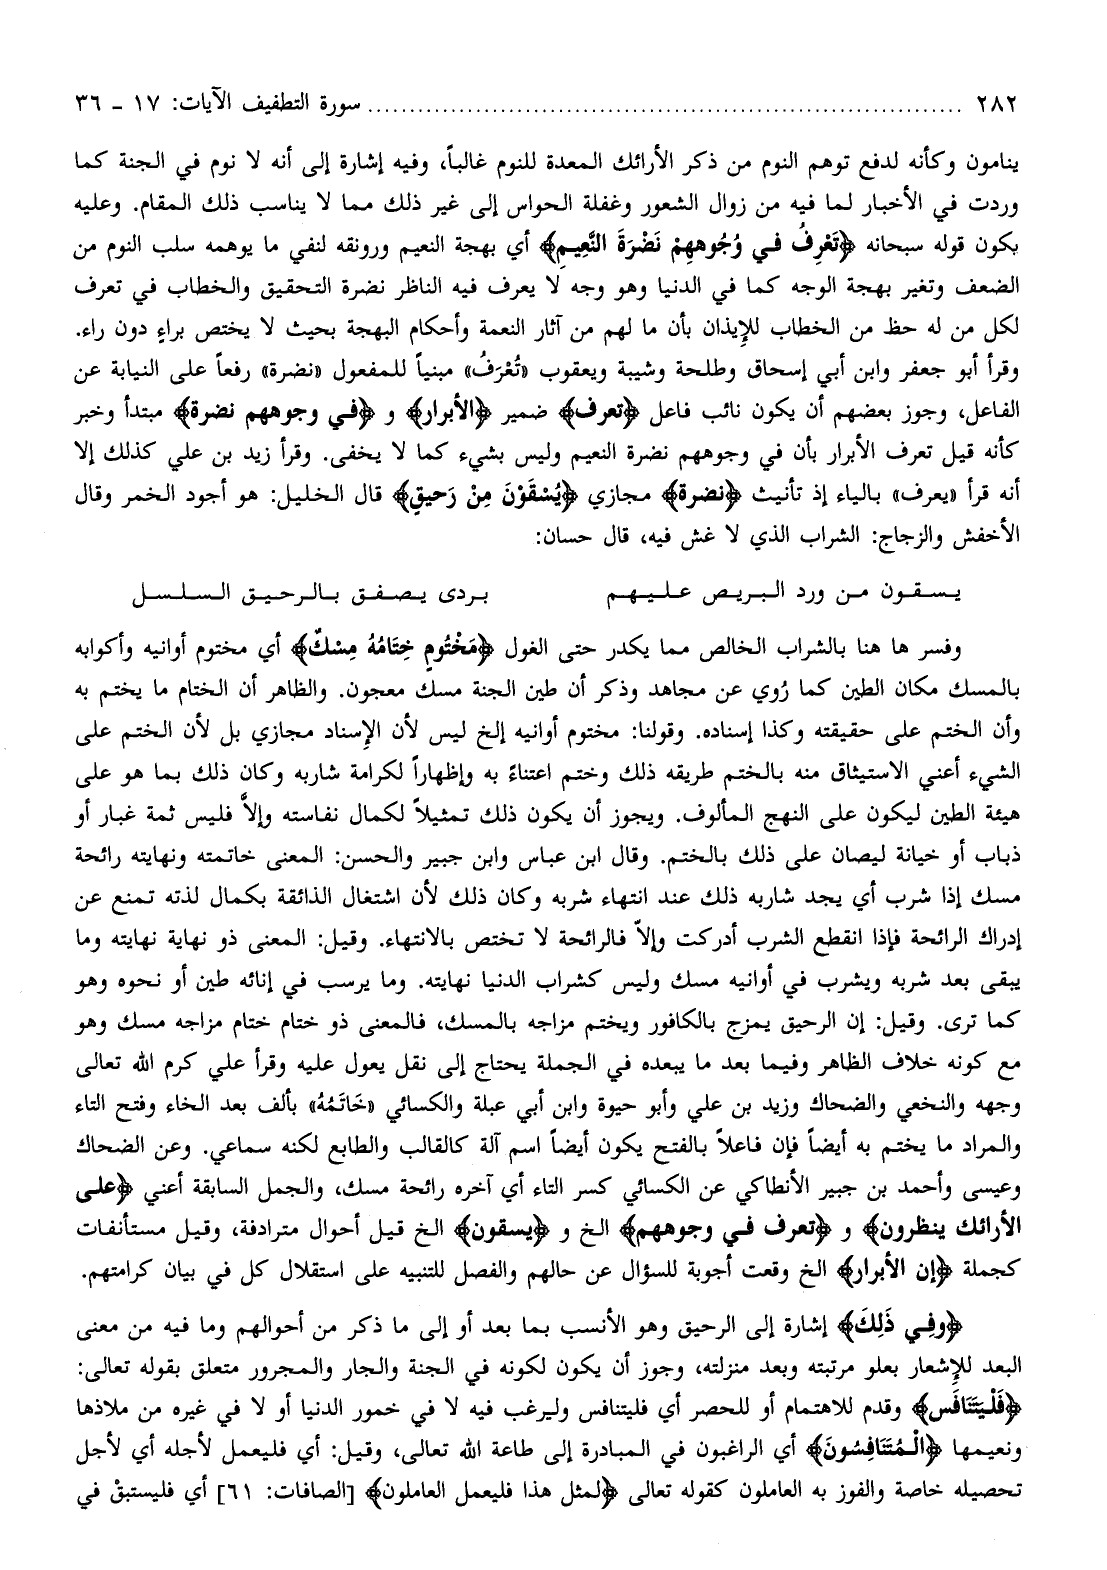 ٢٨٢ ........................................................................ سورة التطفيف الآيات: ١٧ - ٣٦
ينامون وكأنه لدفع توهم النوم من ذكر الأرائك المعدة للنوم غالباً، وفيه إشارة إلى أنه لا نوم في الجنة كما
وردت في الأخبار لما فيه من زوال الشعور وغفلة الحواس إلى غير ذلك مما لا يناسب ذلك المقام. وعليه
يكون قوله سبحانه ﴿تَعْرِفُ في وُجُوههِمْ نَضْرَةَ النَّعِيمِ﴾ أي بهجة النعيم ورونقه لنفي ما يوهمه سلب النوم من
الضعف وتغير بهجة الوجه كما في الدنيا وهو وجه لا يعرف فيه الناظر نضرة التحقيق والخطاب في تعرف
لكل من له حظ من الخطاب للإيذان بأن ما لهم من آثار النعمة وأحكام البهجة بحيث لا يختص براءٍ دون راء.
وقرأ أبو جعفر وابن أبي إسحاق وطلحة وشيبة ويعقوب «تُعْرَفُ» مبنياً للمفعول «نضرة» رفعاً على النيابة عن
الفاعل، وجوز بعضهم أن يكون نائب فاعل ﴿تعرف﴾ ضمير ﴿الأبرار﴾ و ﴿في وجوههم نضرة﴾ مبتدأ وخبر
كأنه قيل تعرف الأبرار بأن في وجوههم نضرة النعيم وليس بشيء كما لا يخفى. وقرأ زيد بن علي كذلك إلا
أنه قرأ «يعرف» بالياء إذ تأنيث ﴿نضرة﴾ مجازي ﴿يُسْقَوْنَ مِنْ رَحيقٍ﴾ قال الخليل: هو أجود الخمر وقال
الأخفش والزجاج: الشراب الذي لا غش فيه، قال حسان:
يسقون من ورد البريص عليهم بردى يصفق بالرحيق السلسل
وفسر ها هنا بالشراب الخالص مما يكدر حتى الغول ﴿مَخْتُومٍ خِتَامُهُ مِسْكٌ﴾ أي مختوم أوانيه وأكوابه
بالمسك مكان الطين كما رُوي عن مجاهد وذكر أن طين الجنة مسك معجون. والظاهر أن الختام ما يختم به
وأن الختم على حقيقته وكذا إسناده. وقولنا: مختوم أوانيه إلخ ليس لأن الإسناد مجازي بل لأن الختم على
الشيء أعني الاستيثاق منه بالختم طريقه ذلك وختم اعتناءً به وإظهاراً لكرامة شاربه وكان ذلك بما هو على
هيئة الطين ليكون على النهج المألوف. ويجوز أن يكون ذلك تمثيلاً لكمال نفاسته وإلاَّ فليس ثمة غبار أو
ذباب أو خيانة ليصان على ذلك بالختم. وقال ابن عباس وابن جبير والحسن: المعنى خاتمته ونهايته رائحة
مسك إذا شرب أي يجد شاربه ذلك عند انتهاء شربه وكان ذلك لأن اشتغال الذائقة بكمال لذته تمنع عن
إدراك الرائحة فإذا انقطع الشرب أدركت وإلاّ فالرائحة لا تختص بالانتهاء. وقيل: المعنى ذو نهاية نهايته وما
يبقى بعد شربه ويشرب في أوانيه مسك وليس كشراب الدنيا نهايته. وما يرسب في إنائه طين أو نحوه وهو
كما ترى. وقيل: إن الرحيق يمزج بالكافور ويختم مزاجه بالمسك، فالمعنى ذو ختام ختام مزاجه مسك وهو
مع كونه خلاف الظاهر وفيما بعد ما يبعده في الجملة يحتاج إلى نقل يعول عليه وقرأ علي كرم الله تعالى
وجهه والنخعي والضحاك وزيد بن علي وأبو حيوة وابن أبي عبلة والكسائي «خَاتَمُهُ» بألف بعد الخاء وفتح التاء
والمراد ما يختم به أيضاً فإن فاعلاً بالفتح يكون أيضاً اسم آلة كالقالب والطابع لكنه سماعي. وعن الضحاك
وعيسى وأحمد بن جبير الأنطاكي عن الكسائي كسر التاء أي آخره رائحة مسك، والجمل السابقة أعني ﴿على
الأرائك ينظرون﴾ و ﴿تعرف في وجوههم﴾ الخ و ﴿يسقون﴾ الخ قيل أحوال مترادفة، وقيل مستأنفات
كجملة ﴿إن الأبرار﴾ الخ وقعت أجوبة للسؤال عن حالهم والفصل للتنبيه على استقلال كل في بيان كرامتهم.
﴿وفِي ذَلِكَ﴾ إشارة إلى الرحيق وهو الأنسب بما بعد أو إلى ما ذكر من أحوالهم وما فيه من معنى
البعد للإشعار بعلو مرتبته وبعد منزلته، وجوز أن يكون لكونه في الجنة والجار والمجرور متعلق بقوله تعالى:
﴿فَلْيَتَنَافَسِ﴾ وقدم للاهتمام أو للحصر أي فليتنافس وليرغب فيه لا في خمور الدنيا أو لا في غيره من ملاذها
ونعيمها ﴿الْمُتَنَافِسُونَ﴾ أي الراغبون في المبادرة إلى طاعة الله تعالى، وقيل: أي فليعمل لأجله أي لأجل
تحصيله خاصة والفوز به العاملون كقوله تعالى ﴿لمثل هذا فليعمل العاملون﴾ [الصافات: ٦١] أي فليستبقْ في